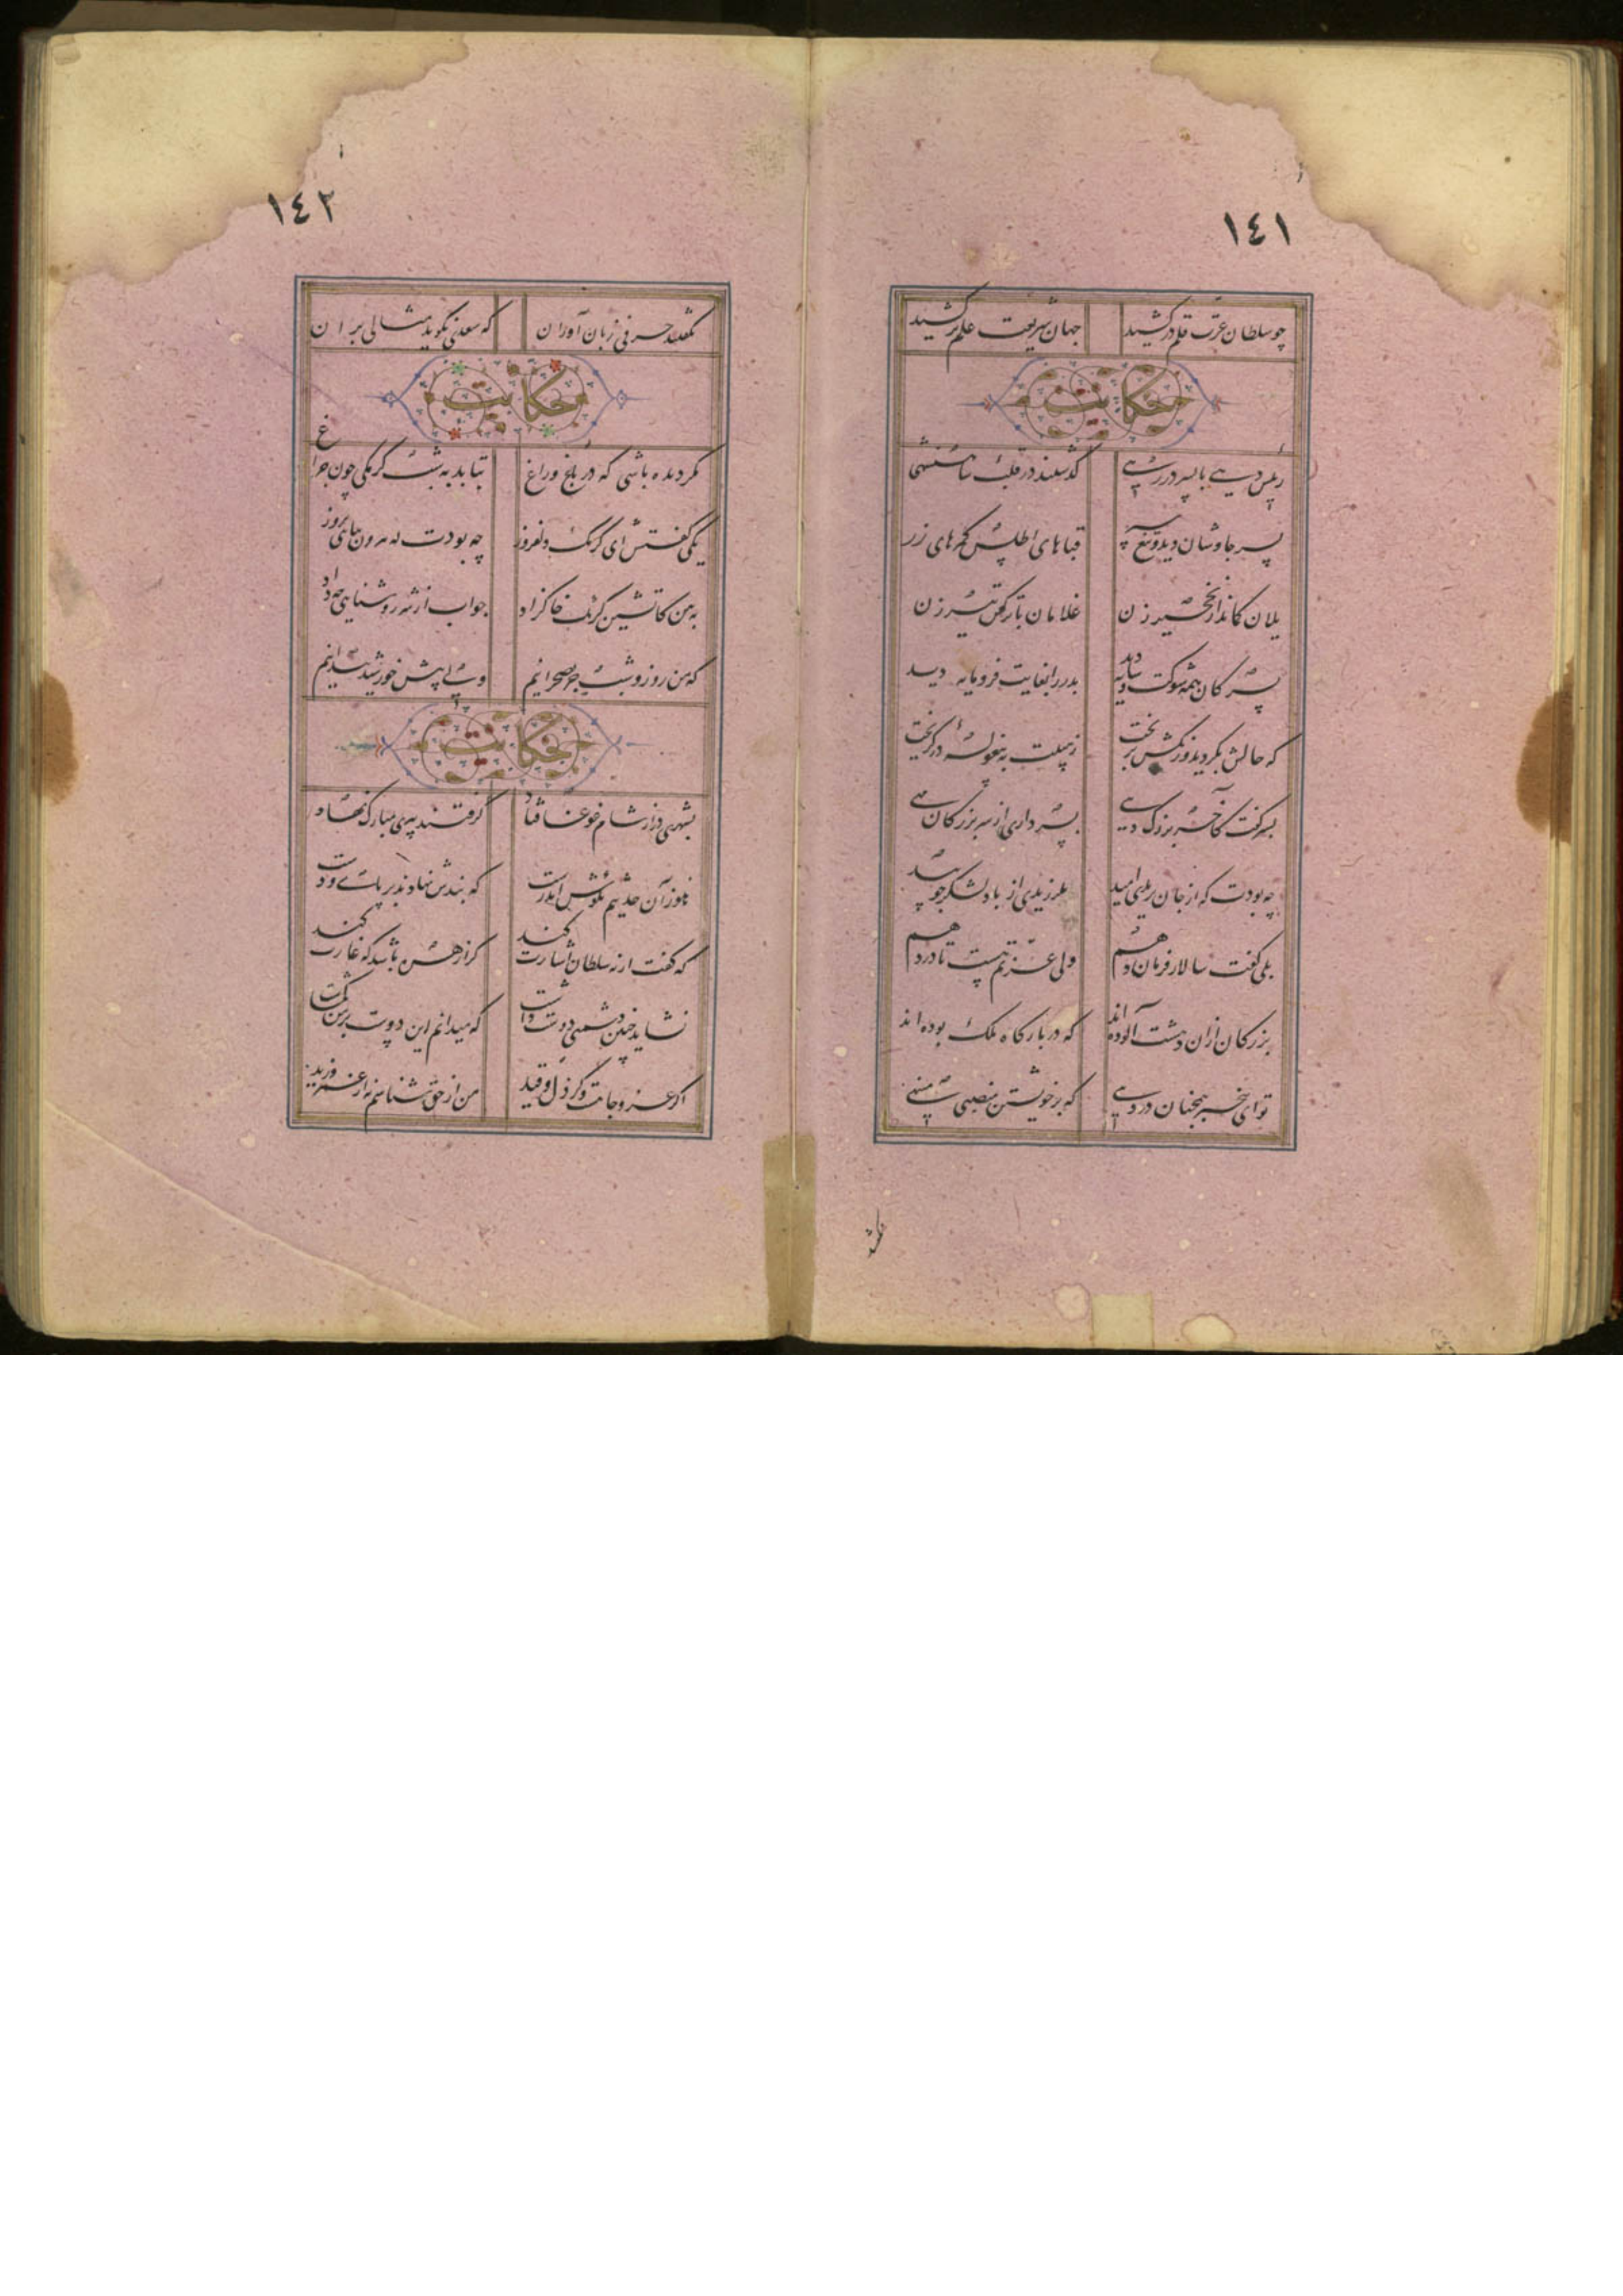 ١٤١
چو سلطان عزت قلم درکشید جهان شریعت علم برکشید
حکایت
رئیس دهی با پسر در رهی گذشتند در قلب شاهنشهی
پسر چاوشان دید و تیغ و تبر قباهای اطلس کمرهای زر
یلان کماندار نخجیر زن غلامان ترکش کش تیر زن
پسر کان همه شوکت و پایه دید پدر را بغایت فرومایه دید
که حالش بگردید و رنگش بریخت ز هیبت به پیغوله در گریخت
پسر گفت کاخر بزرگ دهی بسرداری از سر بزرگان مهی
چه بودت که از جان بریدی امید بلرزیدی از باد لشکر چو بید
بلی گفت سالار فرمان دهم ولی عزتم هست تا در دهم
بزرگان ازان دهشت آلوده اند که در بارگاه ملک بوده اند
تو ای بیخبر همچنان در دهی که بر خویشتن منصبی می نهی
١٤٢
نگفتند حرفی زبان آوران که سعدی نگوید مثالی بران
حکایت
مگر دیده باشی که در باغ و راغ بتابد به شب کرمکی چون چراغ
یکی گفتش ای کرمک دلفروز چه بودت که بیرون نیایی بروز
ببین کاتشین کرمک خاکزاد جواب از سر روشنایی چه داد
که من روز و شب جز بصحرا نیم ولی پیش خورشید پیدا نیم
حکایت
بشهری در از شام غوغا فتاد گرفتند پیری مبارک نهاد
هنوز آن حدیثم بگوش اندرست که بندش نهادند بر پای و دست
که گفت ار نه سلطان اشارت کند کرا زهره باشد که غارت کند
نشاید چنین دشمنی دوست داشت که میدانم این دوست برمن گماشت
اگر عز و جاهست و گر ذل و قید من از حق شناسم نه از عمر و زید